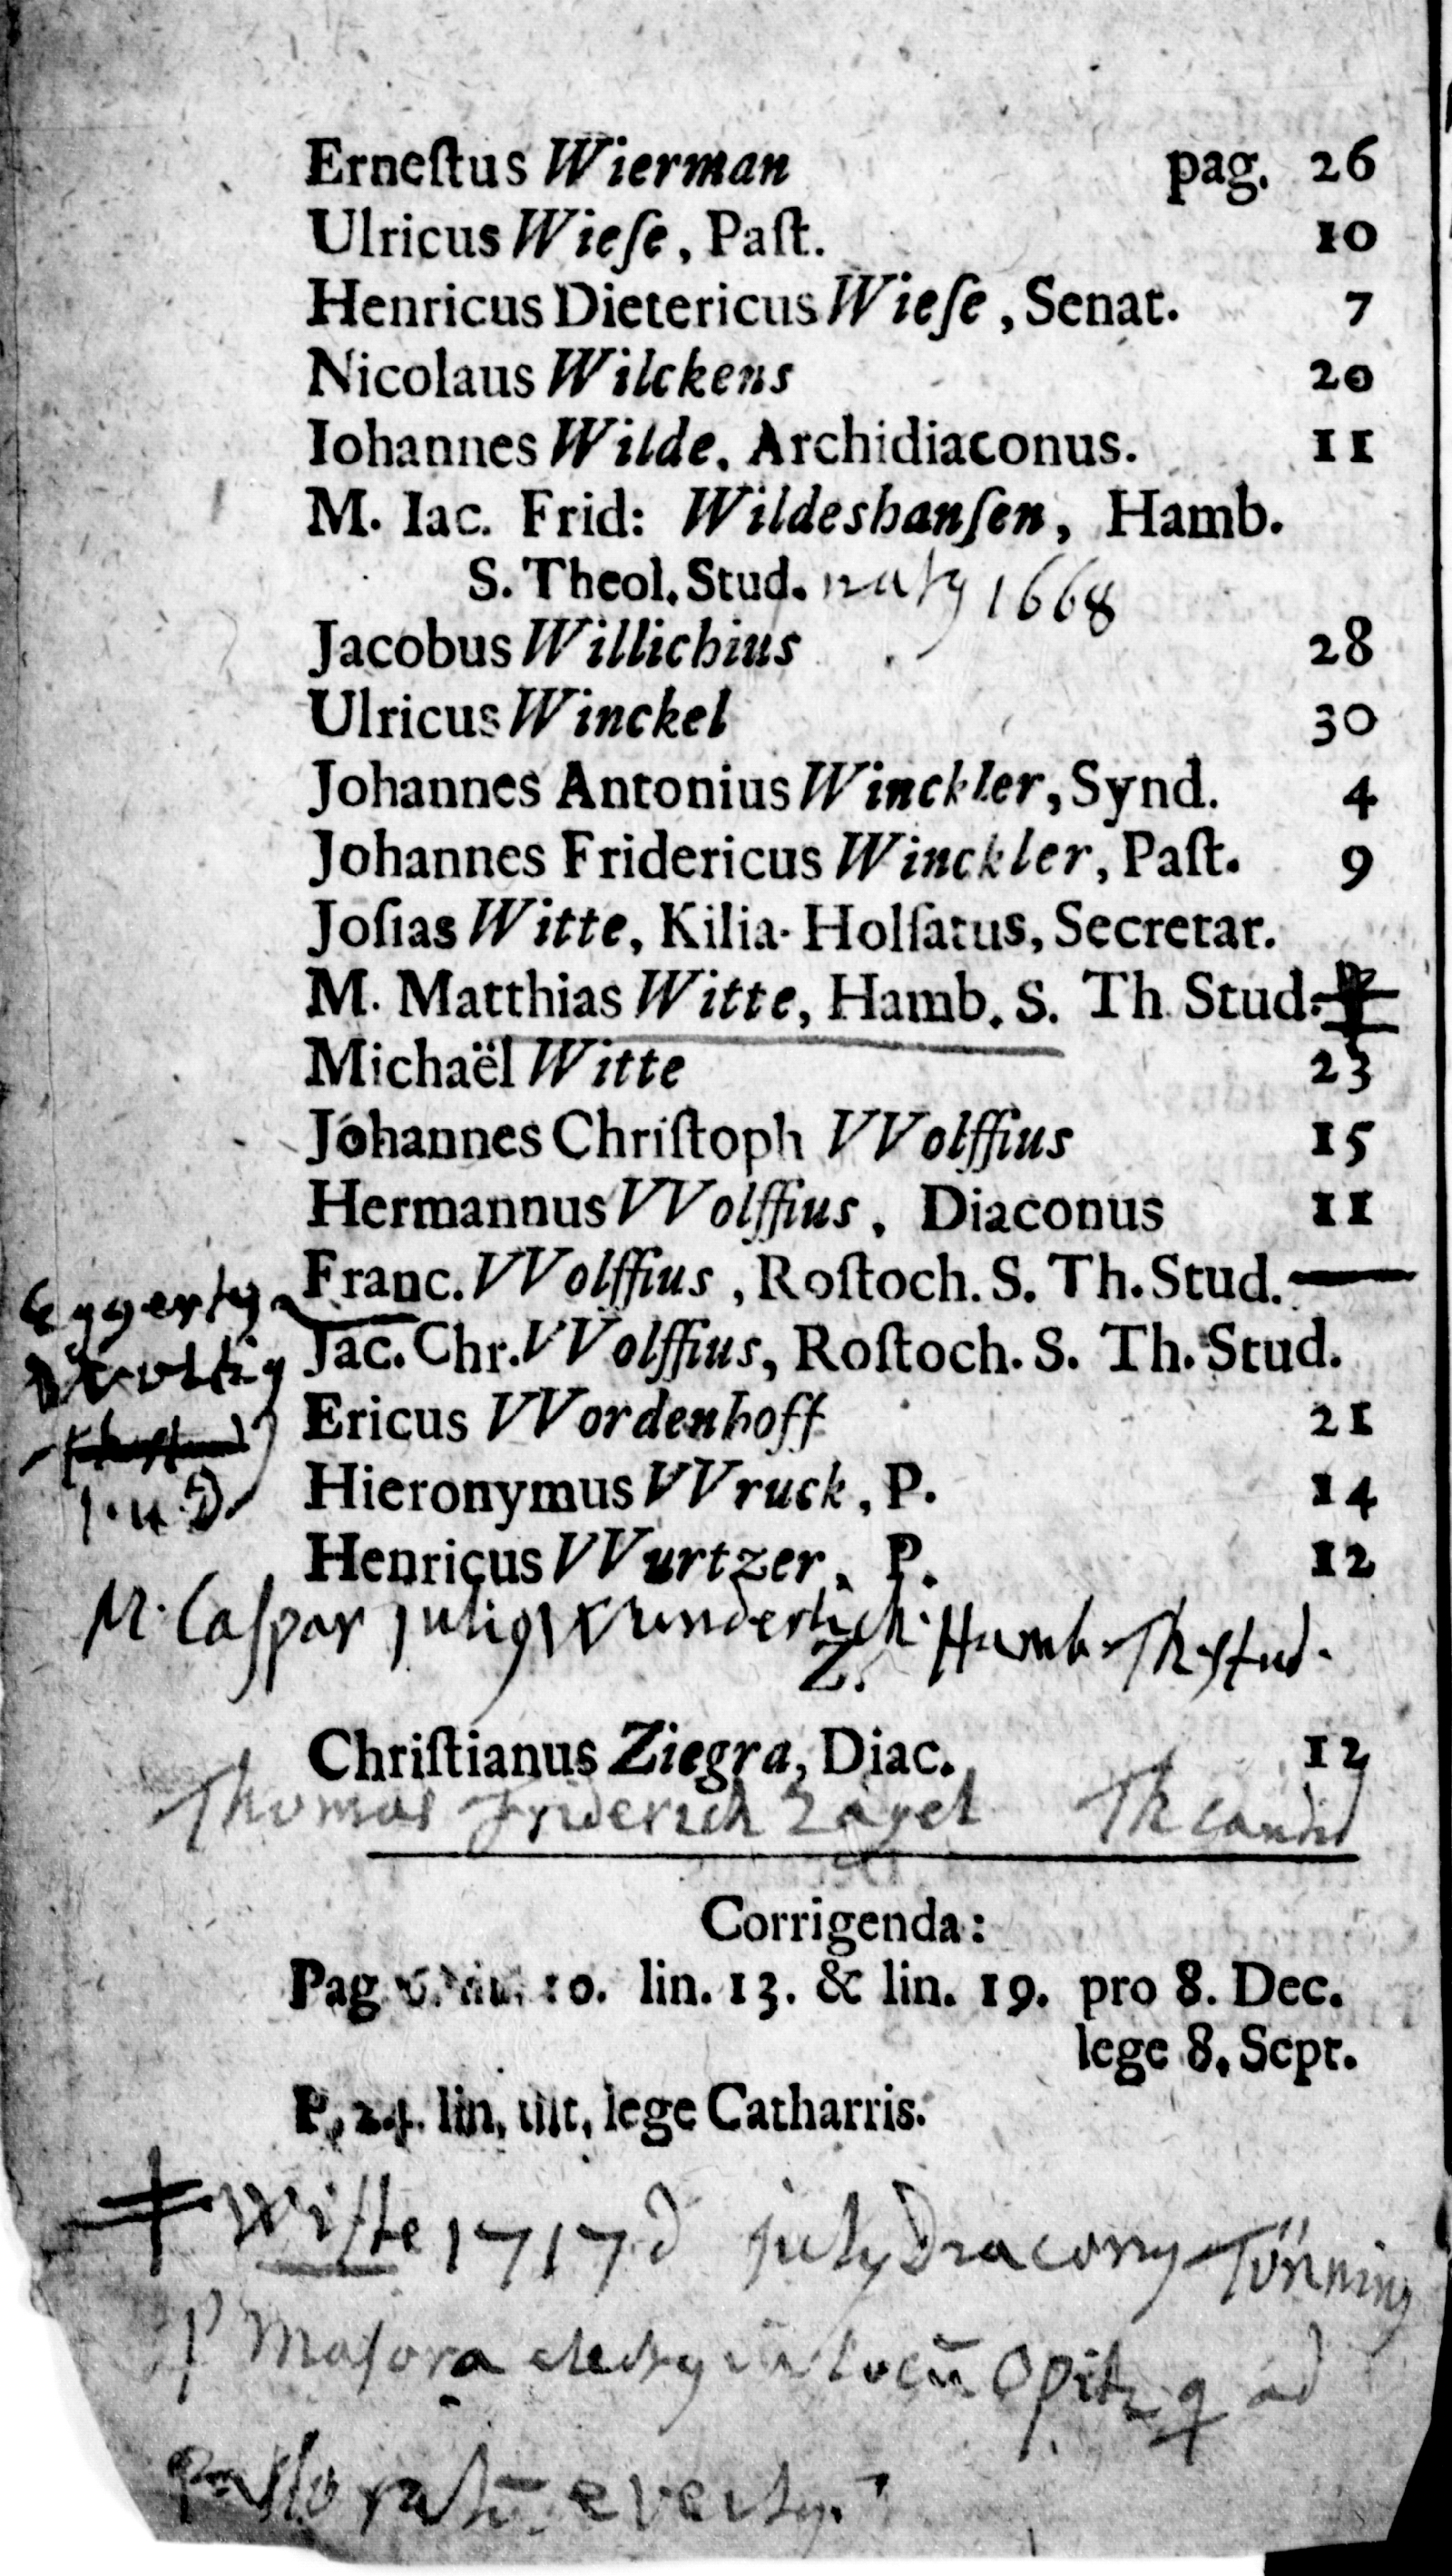 Erneſtus Wierman pag. 26
Ulricus Wieſe, Paſt. 10
Henricus Dietericus Wieſe, Senat. 7
Nicolaus Wilckens 20
Iohannes Wilde, Archidiaconus. 11
M. Iac. Frid: Wildeshanſen, Hamb.
S. Theol. Stud. natꝯ 1668
Jacobus Willichius 28
Ulricus Winckel 30
Johannes Antonius Winckler, Synd. 4
Johannes Fridericus Winckler, Paſt. 9
Joſias Witte, Kilia-Holſatus, Secretar.
M. Matthias Witte, Hamb. S. Th Stud.
Michaël Witte 23
Johannes Chriſtoph VVolffius 15
Hermannus VVolffius, Diaconus 11
Franc. VVolffius, Roſtoch. S. Th. Stud.
Eggertꝯ
Jac. Chr. VVolffius, Roſtoch. S. Th. Stud.
Ericus VVordenhoff 21
Hieronymus VVruck, P. 14
J. u. D.
Henricus VVurtzer, P. 12
M. Caſpar Juliꝯ Wunderlich. Hamb. Th. ſtud.
Z.
Chriſtianus Ziegra, Diac. 12
Thomas Friderich Zagel Th cand
Corrigenda:
Pag 10. lin. 13. & lin. 19. pro 8. Dec.
lege 8. Sept.
P. 24. lin. ult. lege Catharris.
‡ Witte 1717 d July Diaconꝯ Tönning
Majora electꝯ in locū Opitz q ad
paſtoratū evectꝯ.